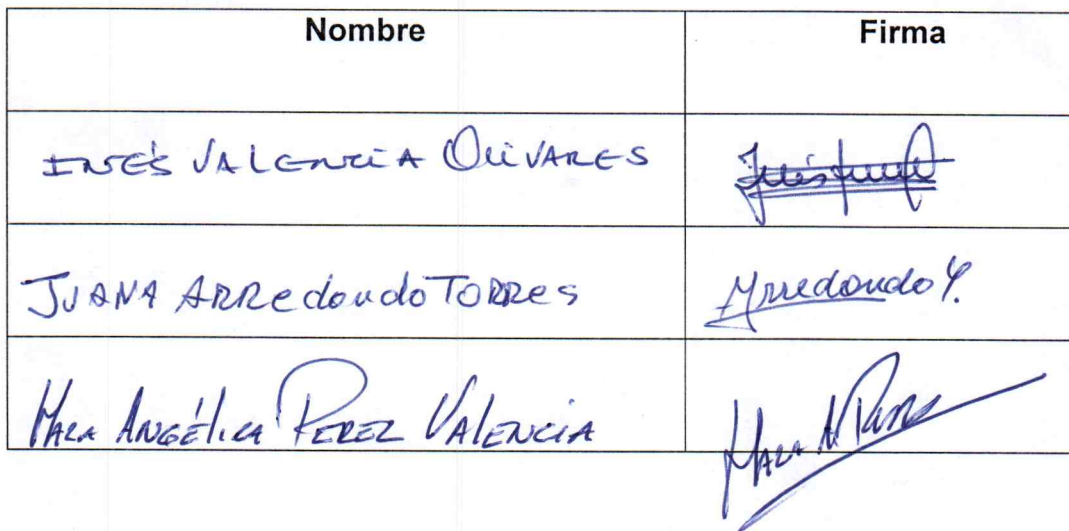 Nombre Firma
INÉS VALENCIA OLIVARES
JUANA ARRedondo TORRES Arredondo
MARA ANGÉLICA PEREZ VALENCIA MARA A